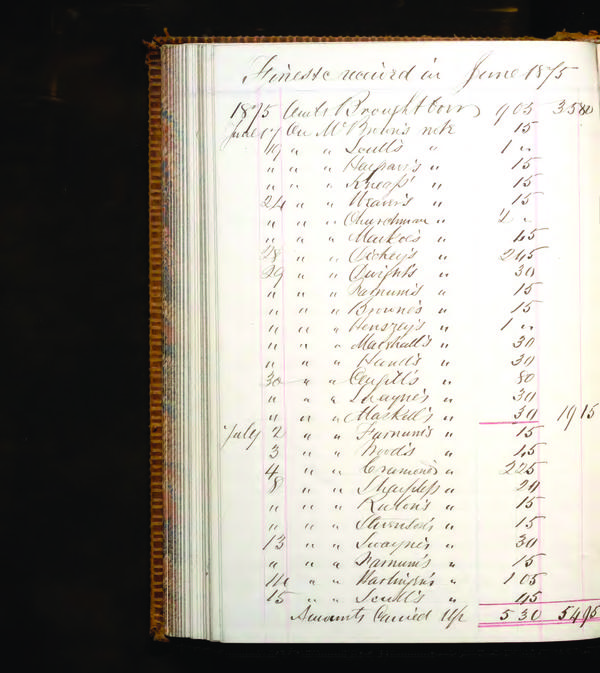 Fines &c received in June 1875
1875 Amts Brought Over 9 05 35 80
June 17 On Mc Brown's note 15
19 " " Scull's " 1 "
" " " Harpar's " 15
" " " Kneass' " 15
24 " " Weaver's " 15
" " " Churchman " 2 "
" " " Markoe's " 45
28 " " Dickey's " 2 45
29 " " Dwight's " 30
" " " Farnum's " 15
" " " Browne's " 15
" " " Henszey's " 1 "
" " " Marshall's " 30
" " " Hand's " 30
30 " " " 80
" " " Swayne's " 30
" " " Maskell's " 30 19 15
July 2 " " Farnum's " 15
3 " " Wood's " 45
4 " " Cramond's " 2 25
8 " " Sharpless " 20
" " " " 15
" " " Stevenson's " 15
13 " " Swayne's " 30
" " " Farnum's " 15
14 " " " 1 05
15 " " Scull's " 45
Amounts Carried Up 5 30 54 95